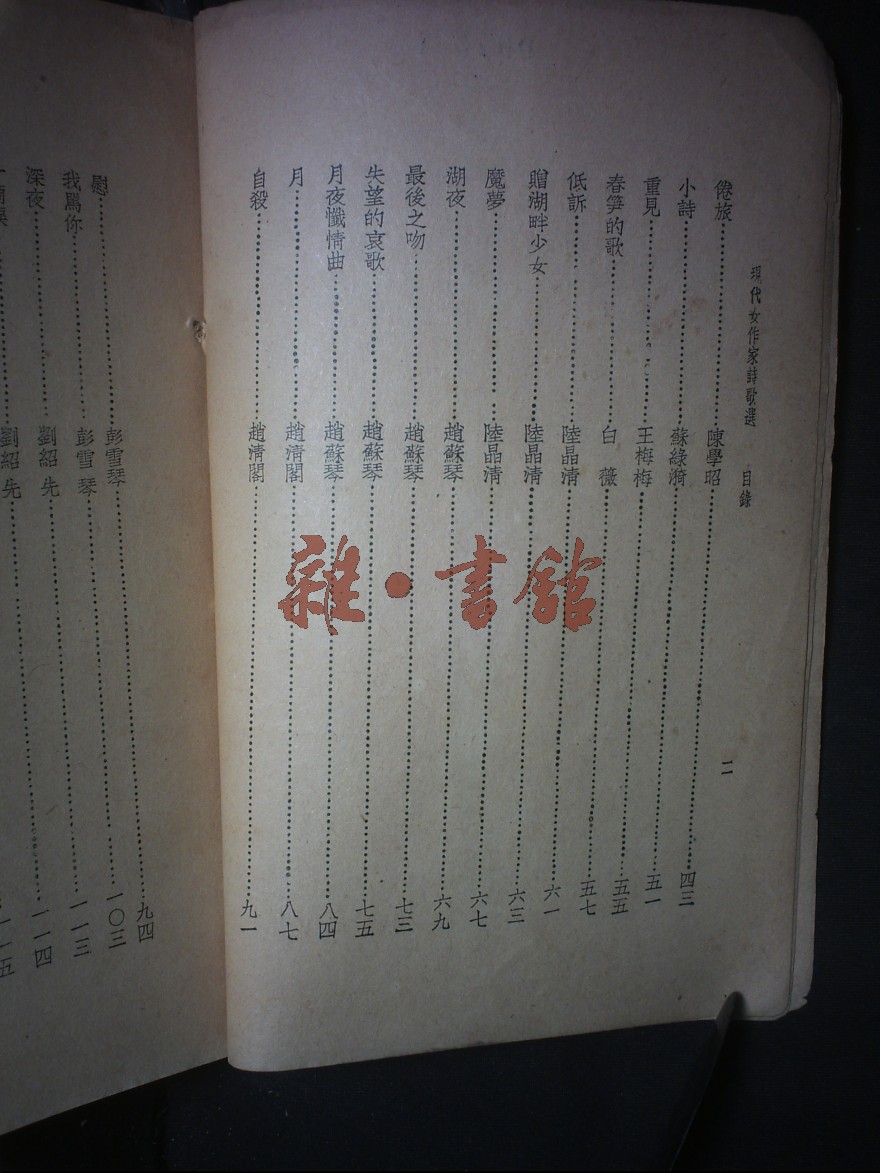 現代女作家詩歌選 目錄 二
倦旅……陳學昭……四三
小詩……蘇綠漪……五一
重見……王梅梅……五五
春笋的歌……白薇……五七
低訴……陸晶清……六一
贈湖畔少女……陸晶清……六三
魔夢……陸晶清……六七
湖夜……趙蘇琴……六九
最後之吻……趙蘇琴……七三
失望的哀歌……趙蘇琴……七五
月夜懺情曲……趙蘇琴……八四
月……趙清閣……八七
自殺……趙清閣……九一
慰……彭雪琴……九四
我爲你……彭雪琴……一〇三
深夜……劉紹先……一一三
劉紹先……一一四
一一五
雜·書館